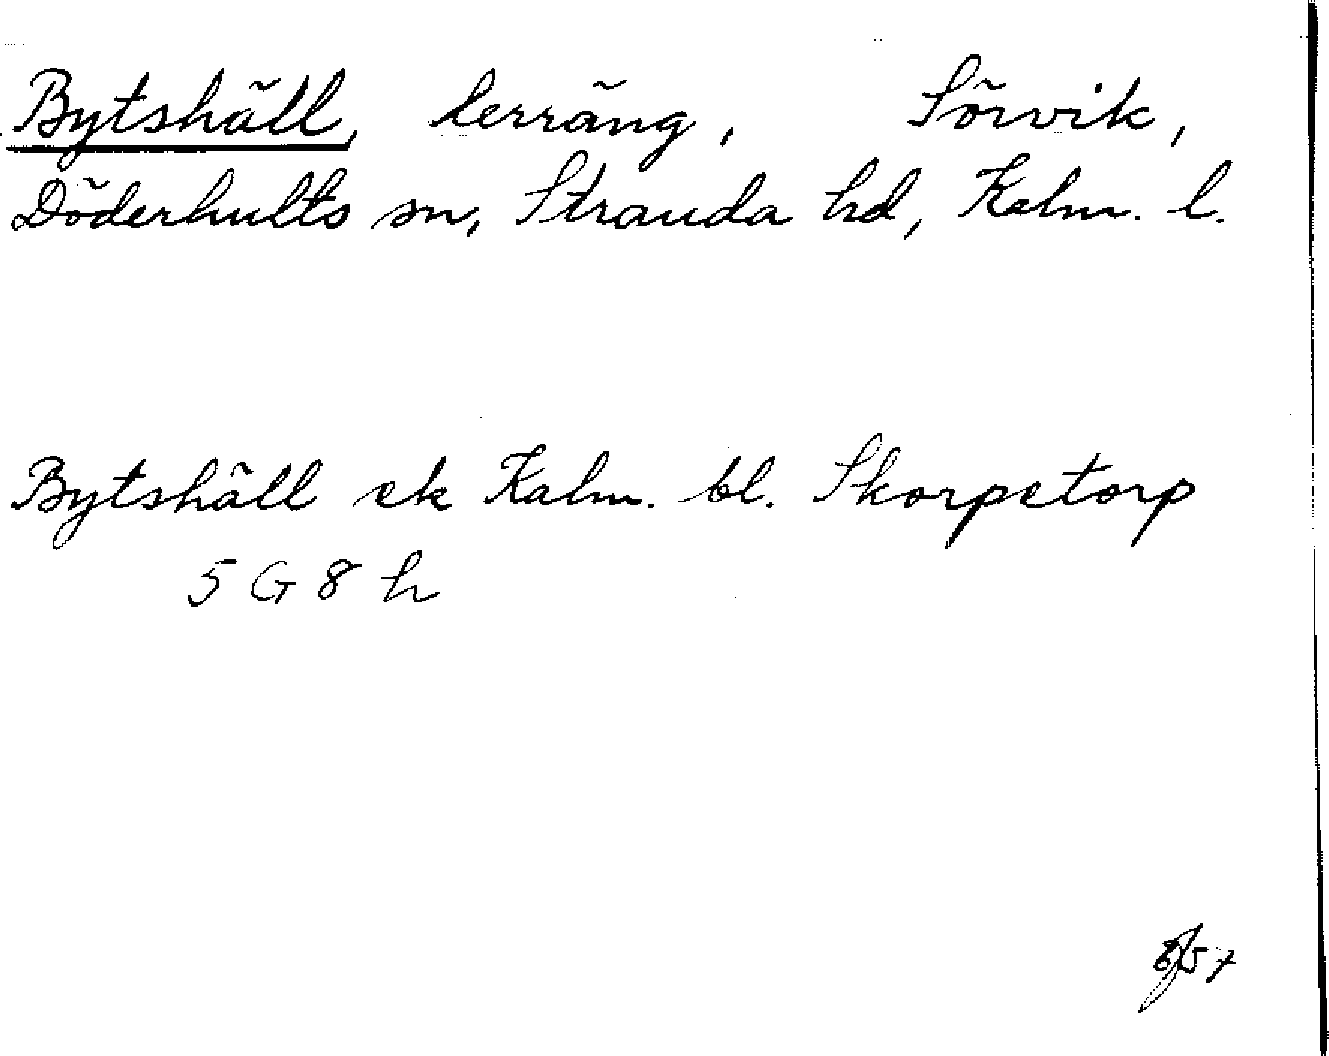 Bytshäll, terräng, Sörvik,
Döderhults sn, Stranda hd, Kalm. l.
Bytshäll ek Kalm. bl. Skorpetorp
5 G 8 h